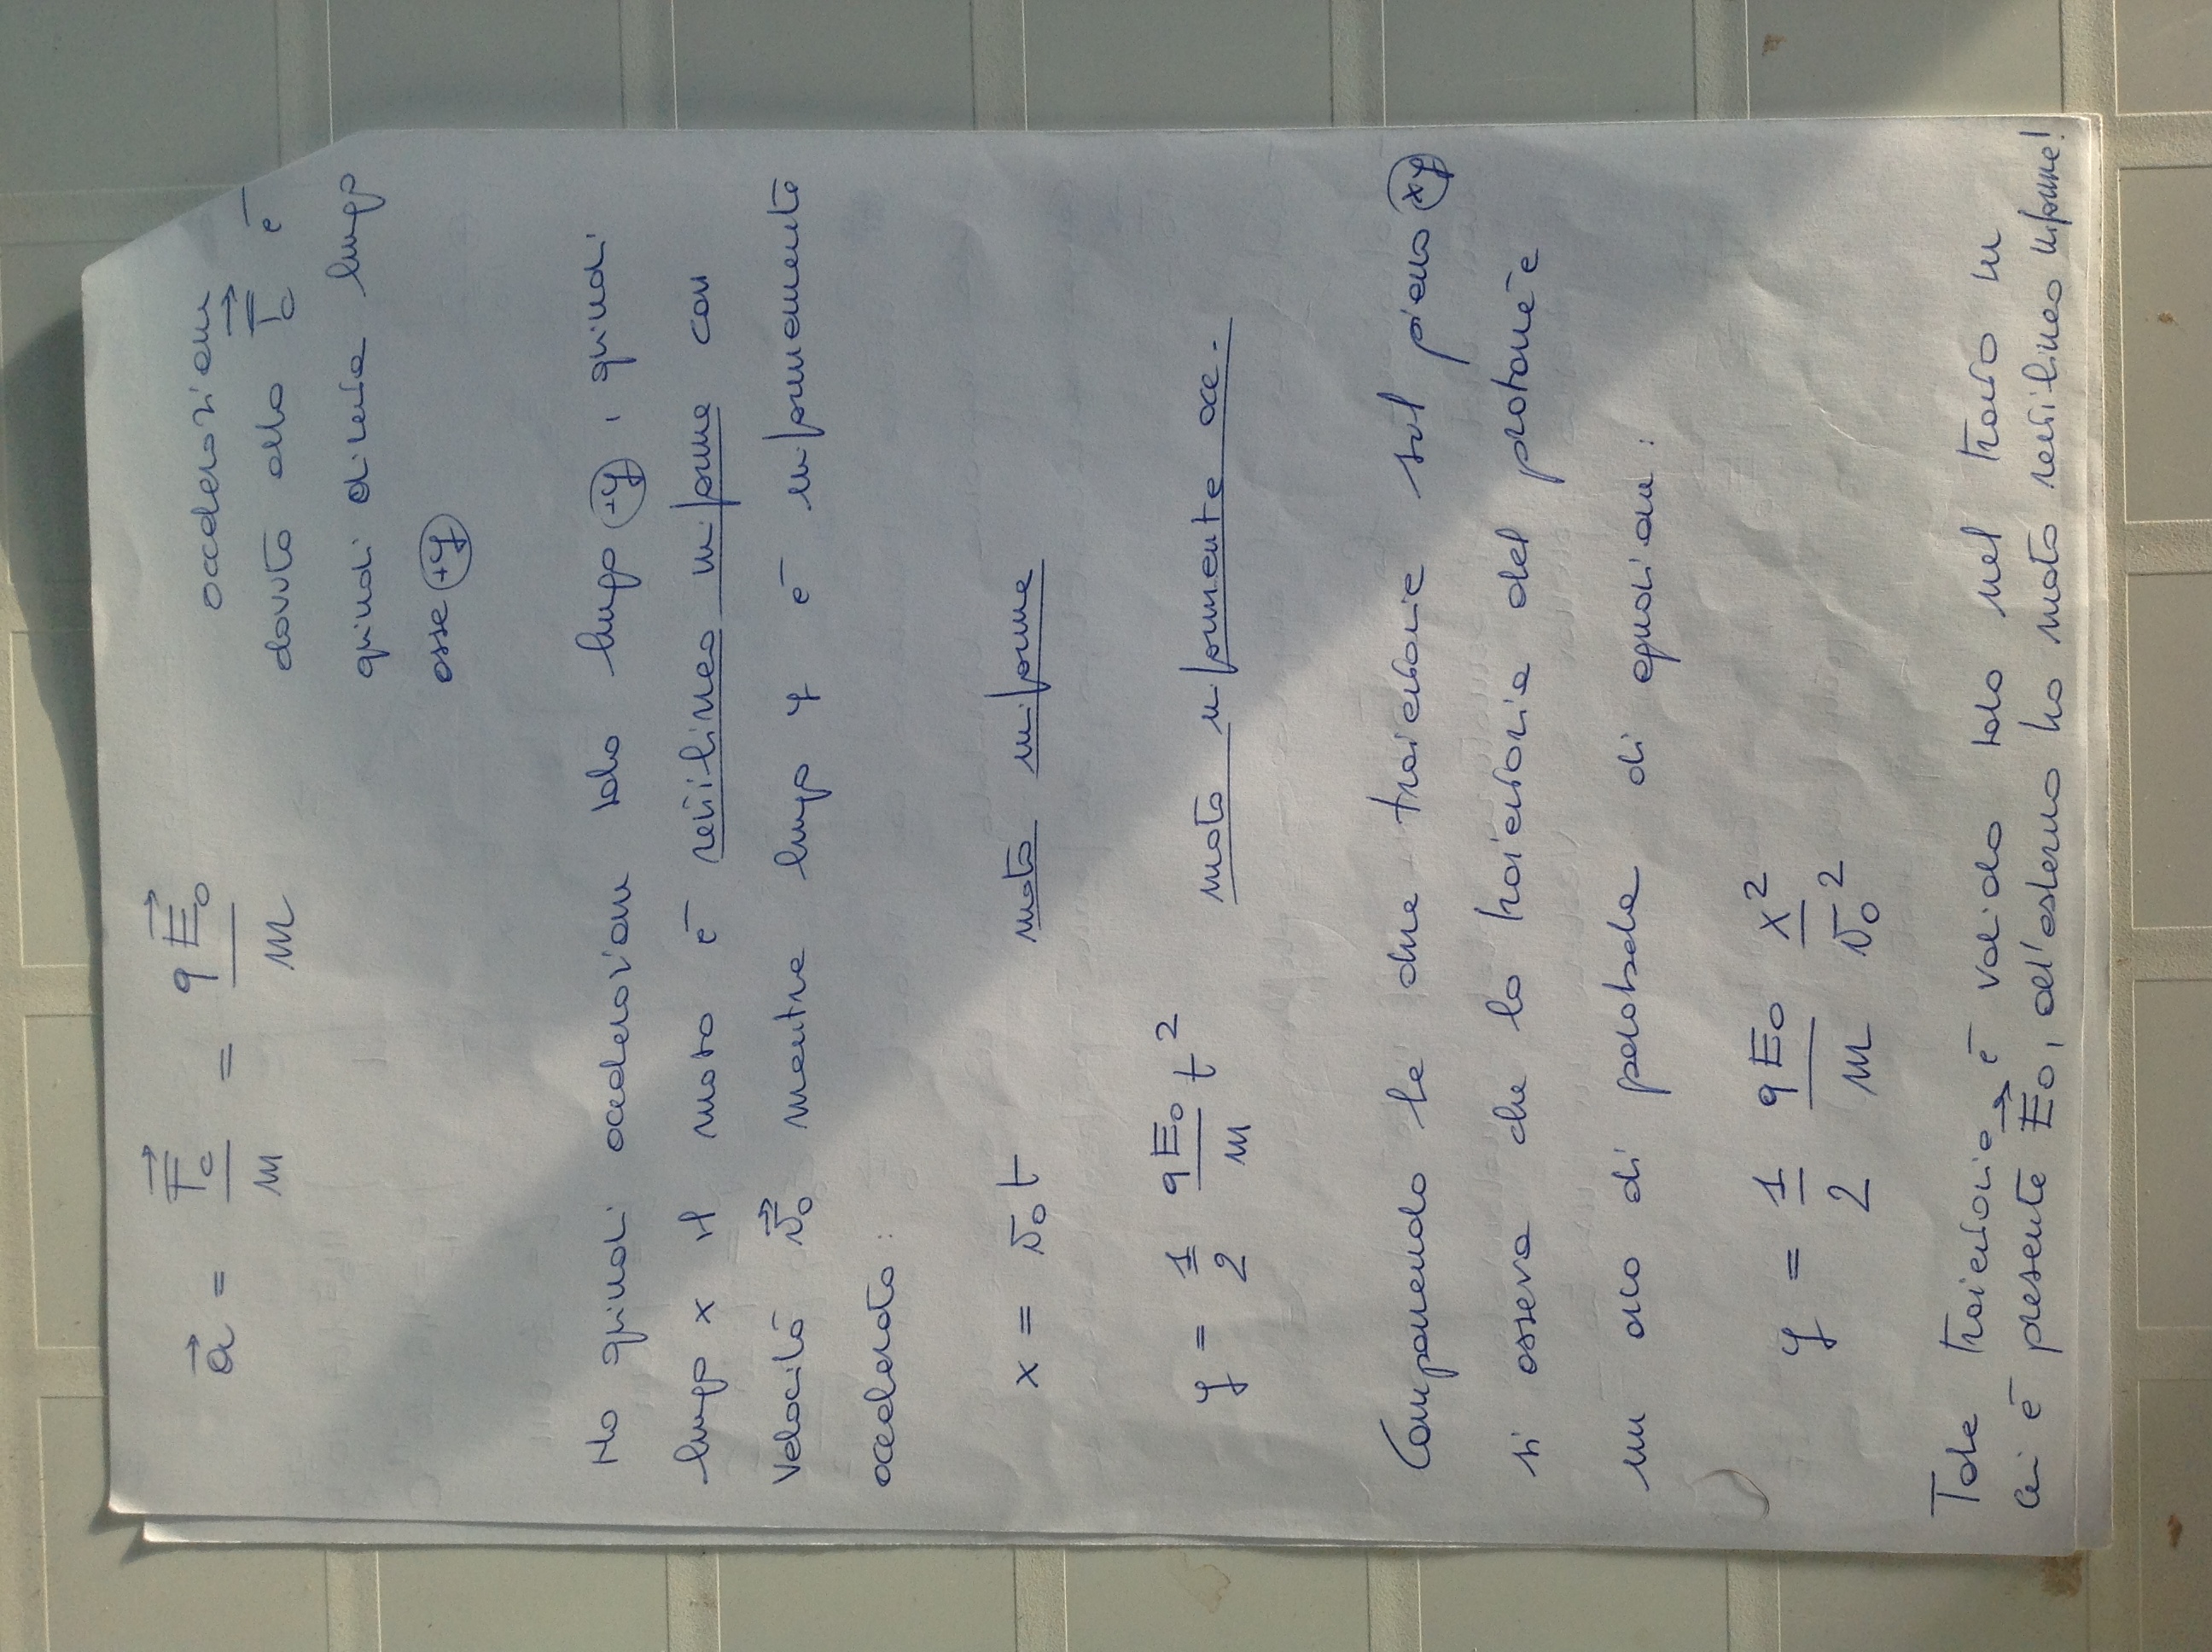 a⃗ = F⃗c / m = q E⃗0 / m
accelerazione
dovuta alla F⃗c è
quindi diretta lungo
asse +y
Ho quindi accelerazione solo lungo +y, quindi
lungo x il moto è rettilineo uniforme con
velocità v⃗0 mentre lungo y è uniformemente
accelerato:
x = v0 t moto uniforme
y = 1/2 qE0/m t² moto uniformente acc.
Componendo le due traiettorie sul piano xy
si osserva che la traiettoria del protone è
un arco di parabola di equazione:
y = 1/2 qE0/m x²/v0²
Tale traiettoria è valida solo nel tratto in
cui è presente E⃗0, all'esterno ho moto rettilineo uniforme!